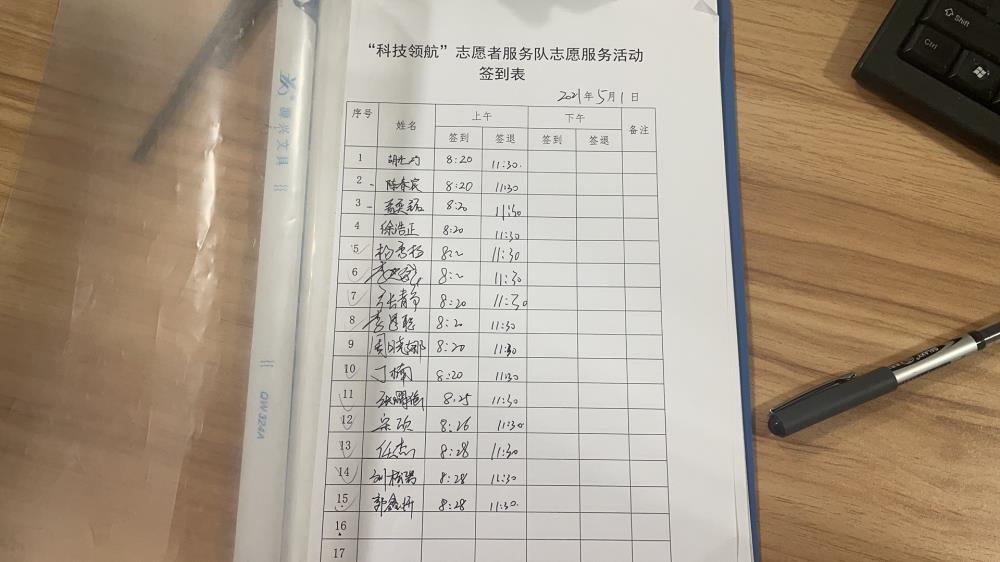 “科技领航”志愿者服务队志愿服务活动
签到表
2021年5月1日
序号 姓名 上午 下午 备注
签到 签退 签到 签退
1 8:20 11:30.
2 陈春宾 8:20 11:30
3 8:20 11:30
4 徐浩正 8:20 11:30
5 杨雪梅 8:2 11:30
6 8:2 11:30
7 张静 8:20 11:30
8 8:20 11:30
9 周晓娜 8:20 11:30
10 丁楠 8:20 11:30
11 8:25 11:30
12 宋硕 8:26 11:30
13 任杰 8:28 11:30
14 8:28 11:30
15 郭鑫妍 8:28 11:30.
16
17
聯兴文具
QW320A
Shift
Ctrl